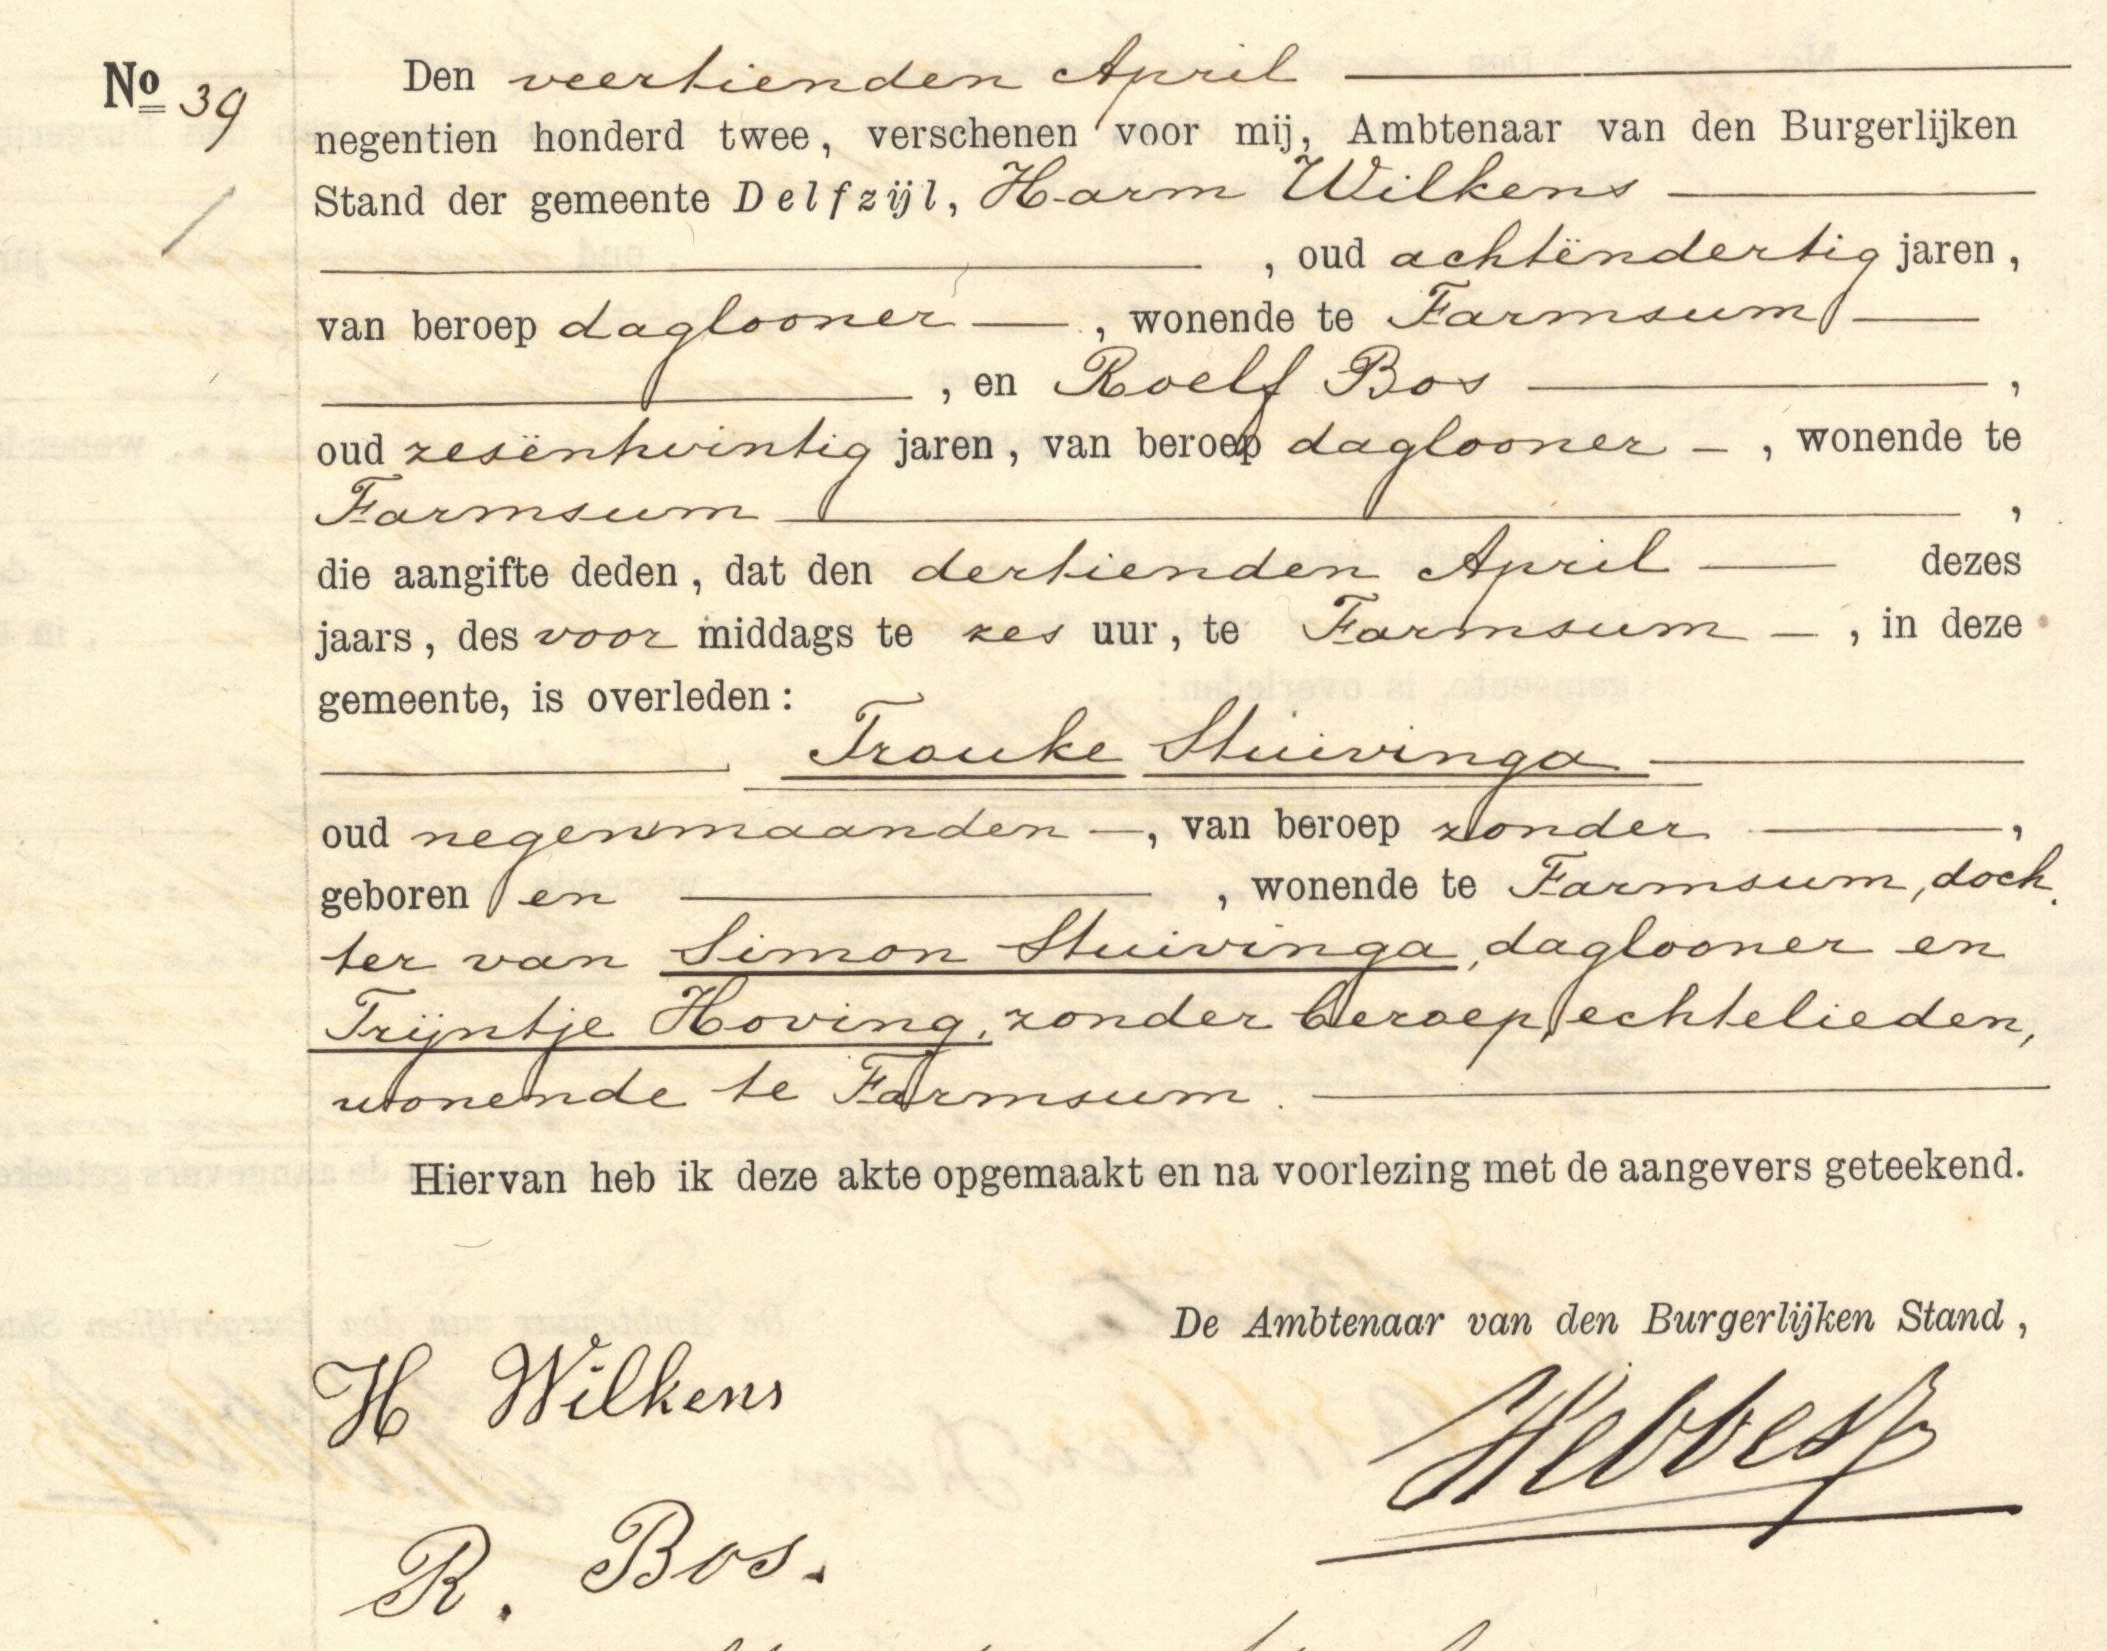 No 39
Den veertienden April
negentien honderd twee, verschenen voor mij, Ambtenaar van den Burgerlijken
Stand der gemeente Delfzijl, Harm Wilkens
, oud achtëndertig jaren,
van beroep daglooner, wonende te Farmsum
, en Roelf Bos,
oud zesëntwintig jaren, van beroep daglooner, wonende te
Farmsum,
die aangifte deden, dat den dertienden April dezes
jaars, des voor middags te zes uur, te Farmsum, in deze
gemeente, is overleden:
Trouke Stuivinga
oud negen maanden, van beroep zonder,
geboren en, wonende te Farmsum, doch
ter van Simon Stuivinga, daglooner en
Trijntje Hoving, zonder beroep, echtelieden,
wonende te Farmsum.
Hiervan heb ik deze akte opgemaakt en na voorlezing met de aangevers geteekend.
De Ambtenaar van den Burgerlijken Stand,
H Wilkens
R. Bos.